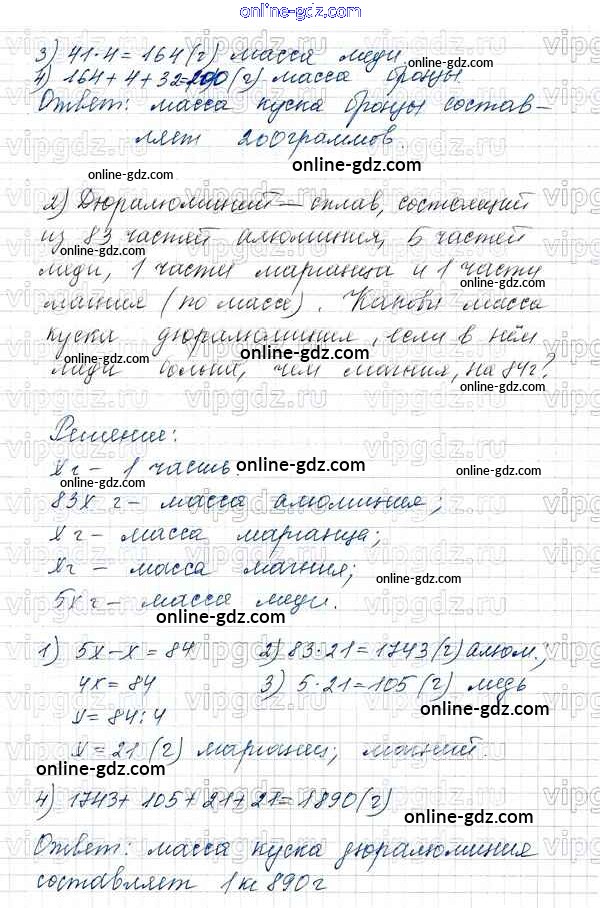 online-gdz.com
3) 41·4=164(г) масса меди
online-gdz.com
4) 164+4+32=200(г) масса бронзы
Ответ: масса куска бронзы состав-
online-gdz.com
ляет 200граммов.
online-gdz.com
online-gdz.com
2) Дюралюминий – сплав, состоящий
из 83 частей алюминия, 5 частей
online-gdz.com
меди, 1 части марганца и 1 части
магния (по массе). Какова масса
online-gdz.com
куска дюралюминия, если в нём
online-gdz.com
online-gdz.com
меди больше, чем магния, на 84г?
online-gdz.com
Решение:
online-gdz.com
хг – 1 часть
online-gdz.com
83х г – масса алюминия;
online-gdz.com
хг – масса марганца;
хг – масса магния;
online-gdz.com
5хг – масса меди.
online-gdz.com
1) 5х–х=84 2) 83·21=1743(г) алюм.;
4х=84 3) 5·21=105(г) медь
online-gdz.com
х=84:4
х=21(г) марганец; магний.
online-gdz.com
4) 1743+105+21+21=1890(г)
online-gdz.com
Ответ: масса куска дюралюминия
online-gdz.com
составляет 1кг 890г